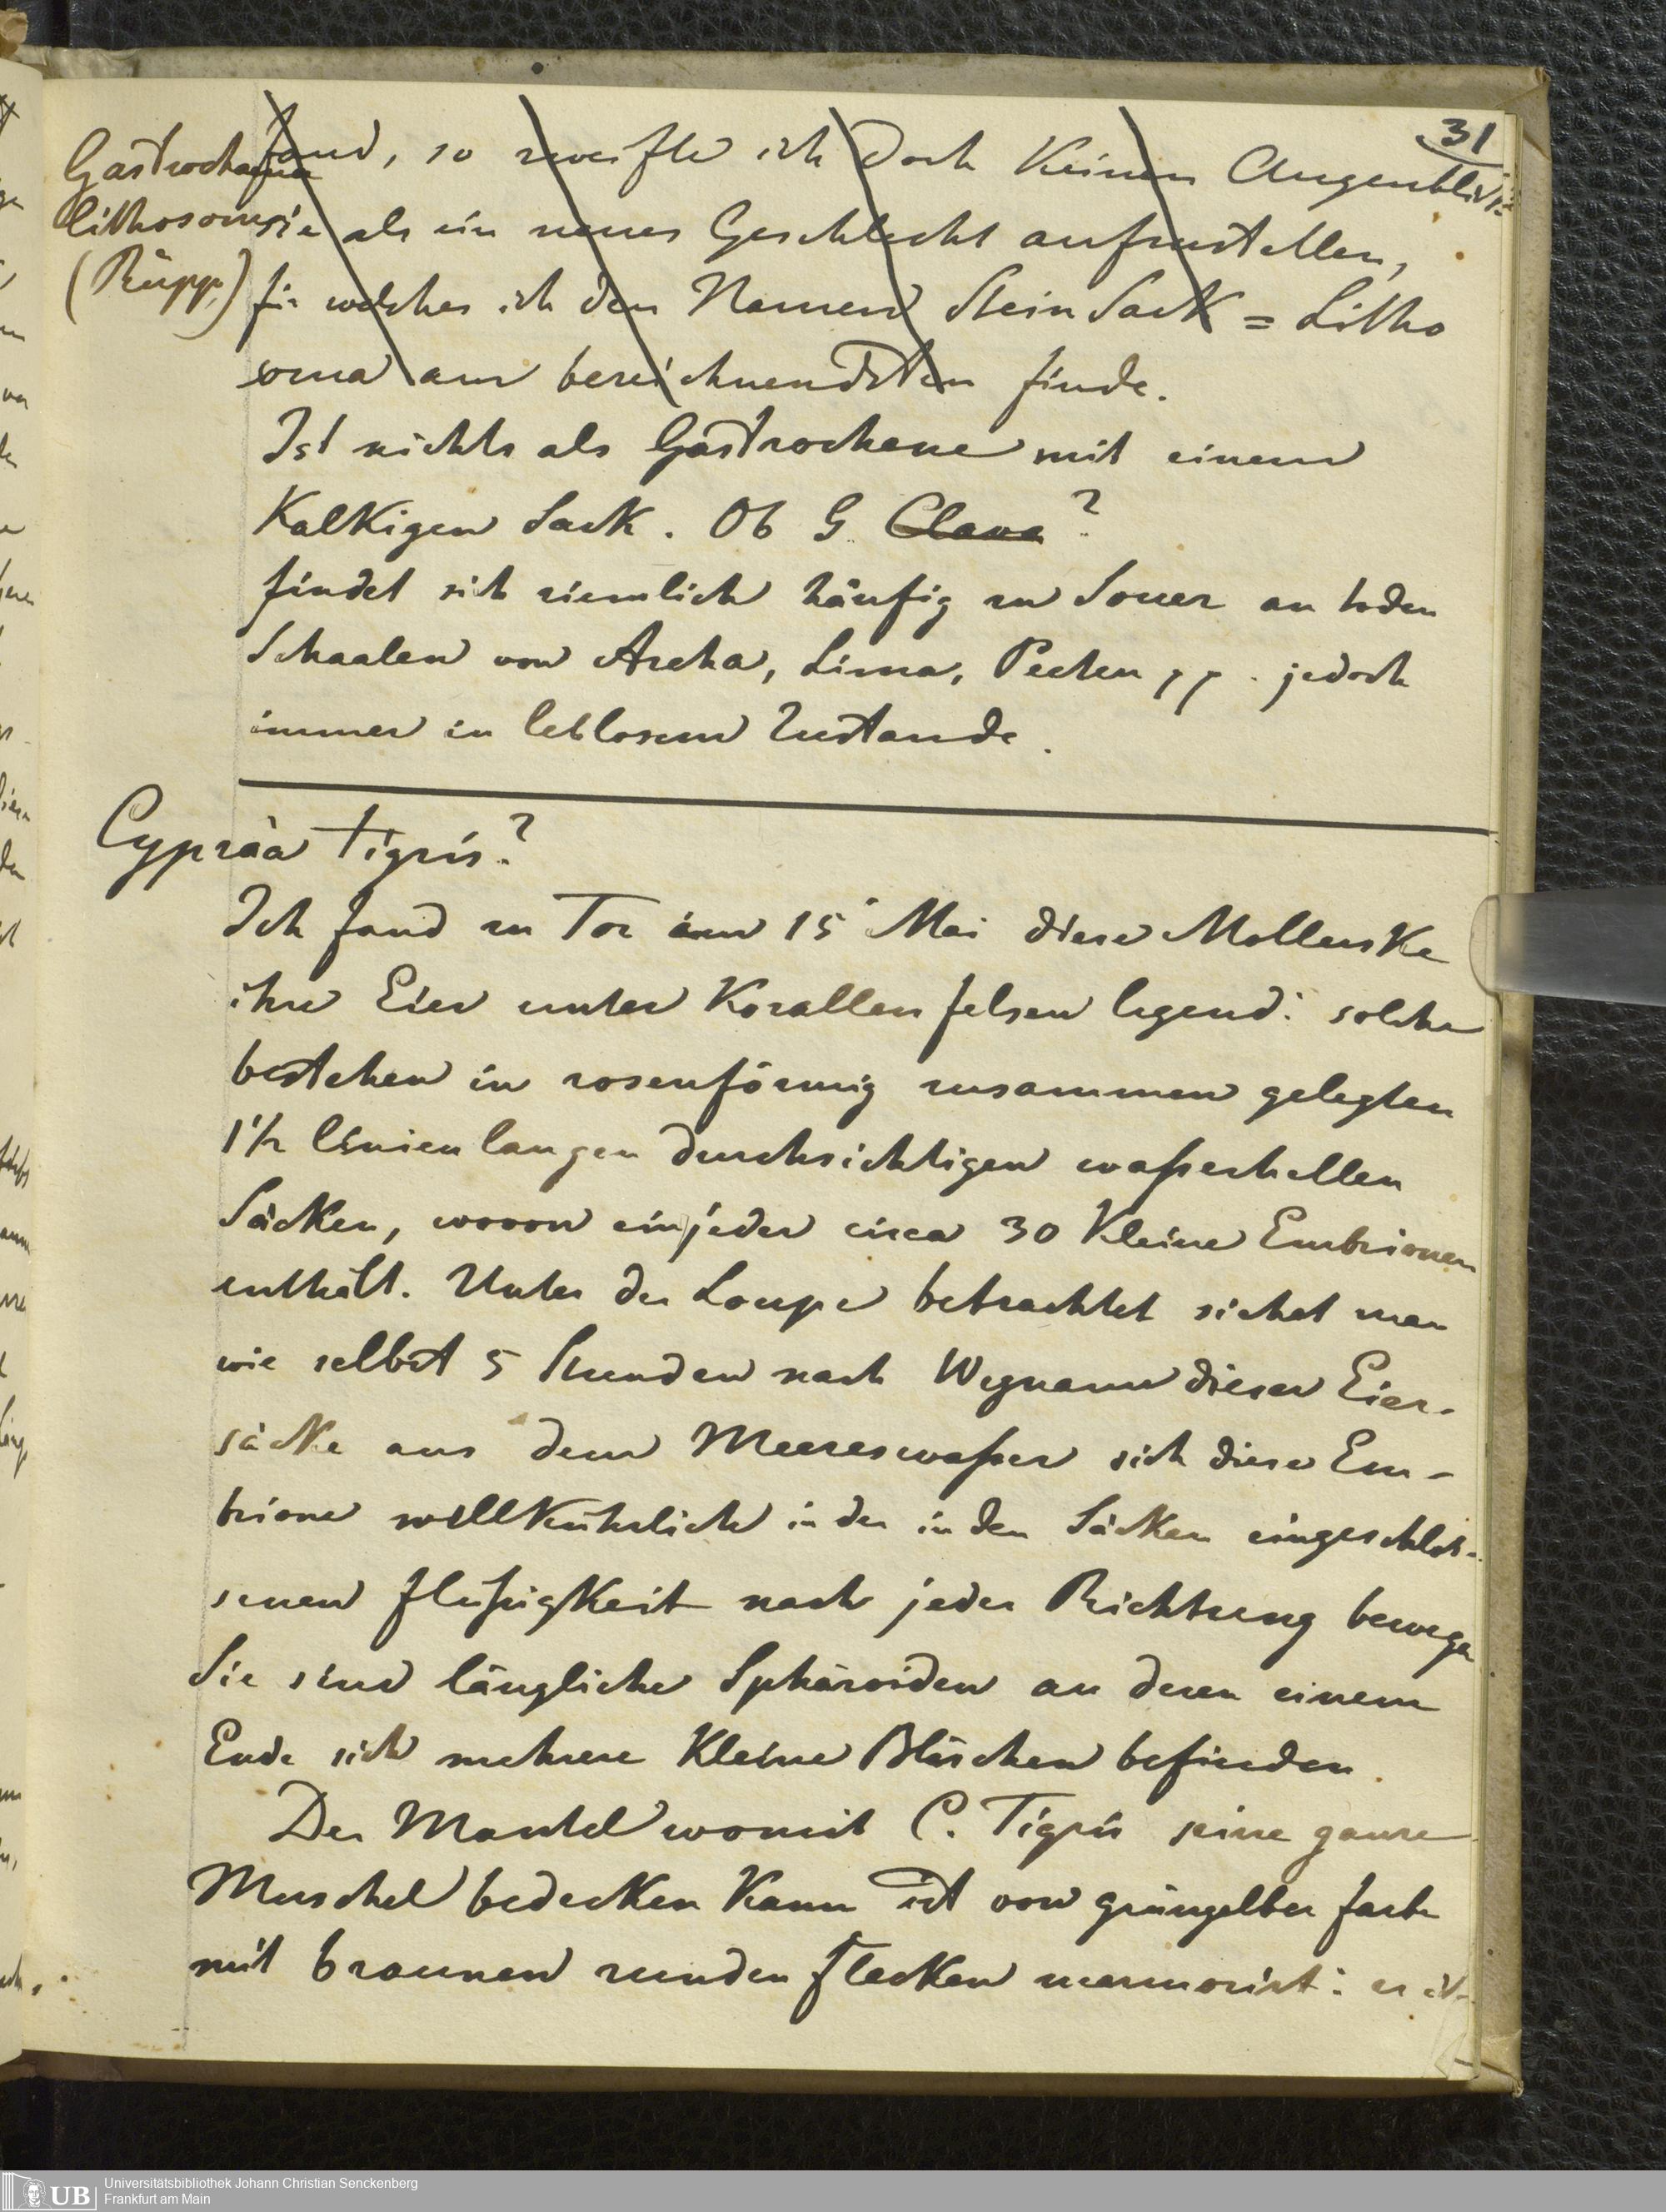 31
Gastrochaena
lithosoma
(Rüpp.)
fand, so zweifle ich doch keinen Augenblick
sie als ein neues Geschlecht aufzustellen,
für welches ich den Namen Stein Sack = Litho
soma am bezeichnendsten finde.
Ist nichts als Gastrochene mit einem
Kalkigen Sack. Ob G. Clava?
findet sich ziemlich häufig zu Souer an toden
Schaalen von Archa, Lima, Pecten pp. jedoch
immer in leblosem Zustande.
Cypräa tigris?
Ich fand zu Tor am 15 Mai diese Molluske
ihre Eier unter Korallen felsen legend: solche
bestehen in rosenförmig zusammen gelegten
1 1/2 Linien langen durchsichtigen waßerhellen
Säcken, wovon ein jeder circa 30 Kleine Embrionen
enthält. Unter der Loupe betrachtet siehet man
wie selbst 5 Stunden nach Wegname dieser Eier-
säcke aus dem Meereswaßer sich diese Em-
brione willkührlich in der in den Säcken eingeschlos-
senen Flußigkeit nach jeder Richtung bewegen
Sie sind längliche Sphäroiden an deren einem
Ende sich mehrere Kleine Bläschen befinden.
Der Mantel womit C. Tigris seine ganze
Muschel bedecken kann ist von grüngelber farbe
mit braunen runden Flecken marmorirt: er ist
UB
Universitätsbibliothek Johann Christian Senckenberg
Frankfurt am Main